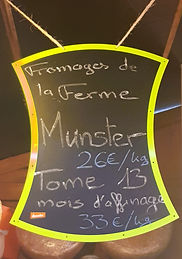 Fromages de
la Ferme
Munster
26€/kg
Tome 13
mois d'affinage
33€/kg